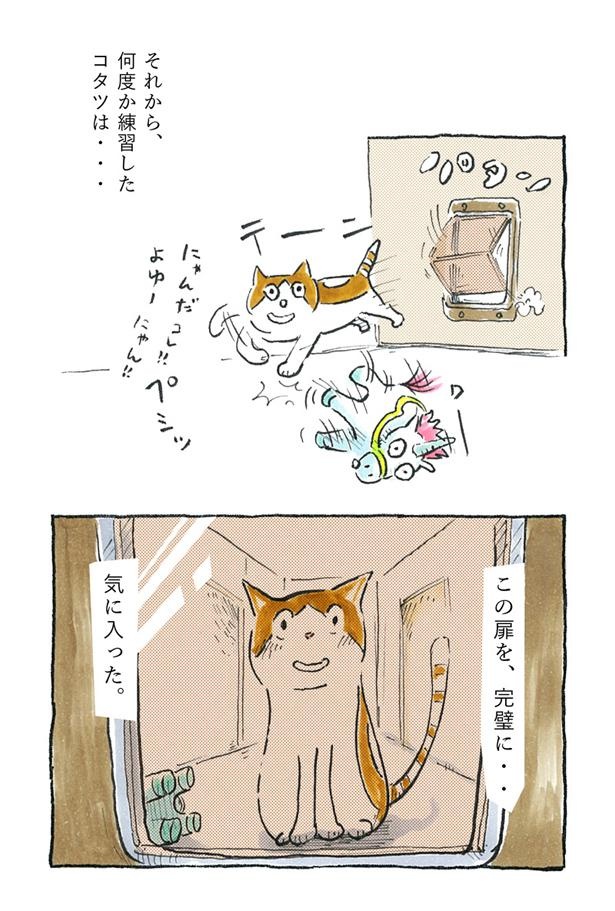 それから、
何度か練習した
コタツは・・・
パタン
テーン
にゃんだコレ!!
よゆーにゃん!!
ペシッ
ワー
この扉を、完璧に・・
気に入った。